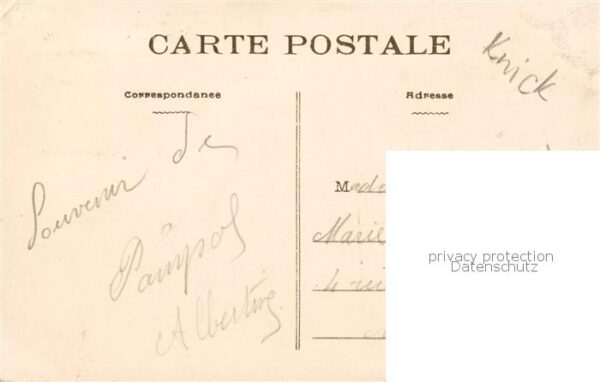 CARTE POSTALE
Knick
Correspondance
Adresse
Souvenir de
Paimpol
Albertine
Made
Marie
4
privacy protection
Datenschutz